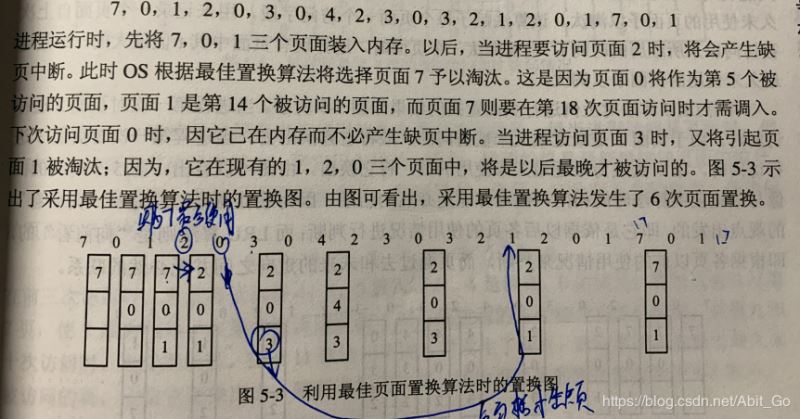 7，0，1，2，0，3，0，4，2，3，0，3，2，1，2，0，1，7，0，1
进程运行时，先将 7，0，1 三个页面装入内存。以后，当进程要访问页面 2 时，将会产生缺
页中断。此时 OS 根据最佳置换算法将选择页面 7 予以淘汰。这是因为页面 0 将作为第 5 个被
访问的页面，页面 1 是第 14 个被访问的页面，而页面 7 则要在第 18 次页面访问时才需调入。
下次访问页面 0 时，因它已在内存而不必产生缺页中断。当进程访问页面 3 时，又将引起页
面 1 被淘汰；因为，它在现有的 1，2，0 三个页面中，将是以后最晚才被访问的。图 5-3 示
出了采用最佳置换算法时的置换图。由图可看出，采用最佳置换算法发生了 6 次页面置换。
7 0 1 2 0 3 0 4 2 3 0 3 2 1 2 0 1 7 0 1
17 17
7 7 7 2 2 2 2 2 7
0 0 0 0 4 0 0 0
1 1 3 3 3 1 1
图 5-3 利用最佳页面置换算法时的置换图
https://blog.csdn.net/Abit_Go